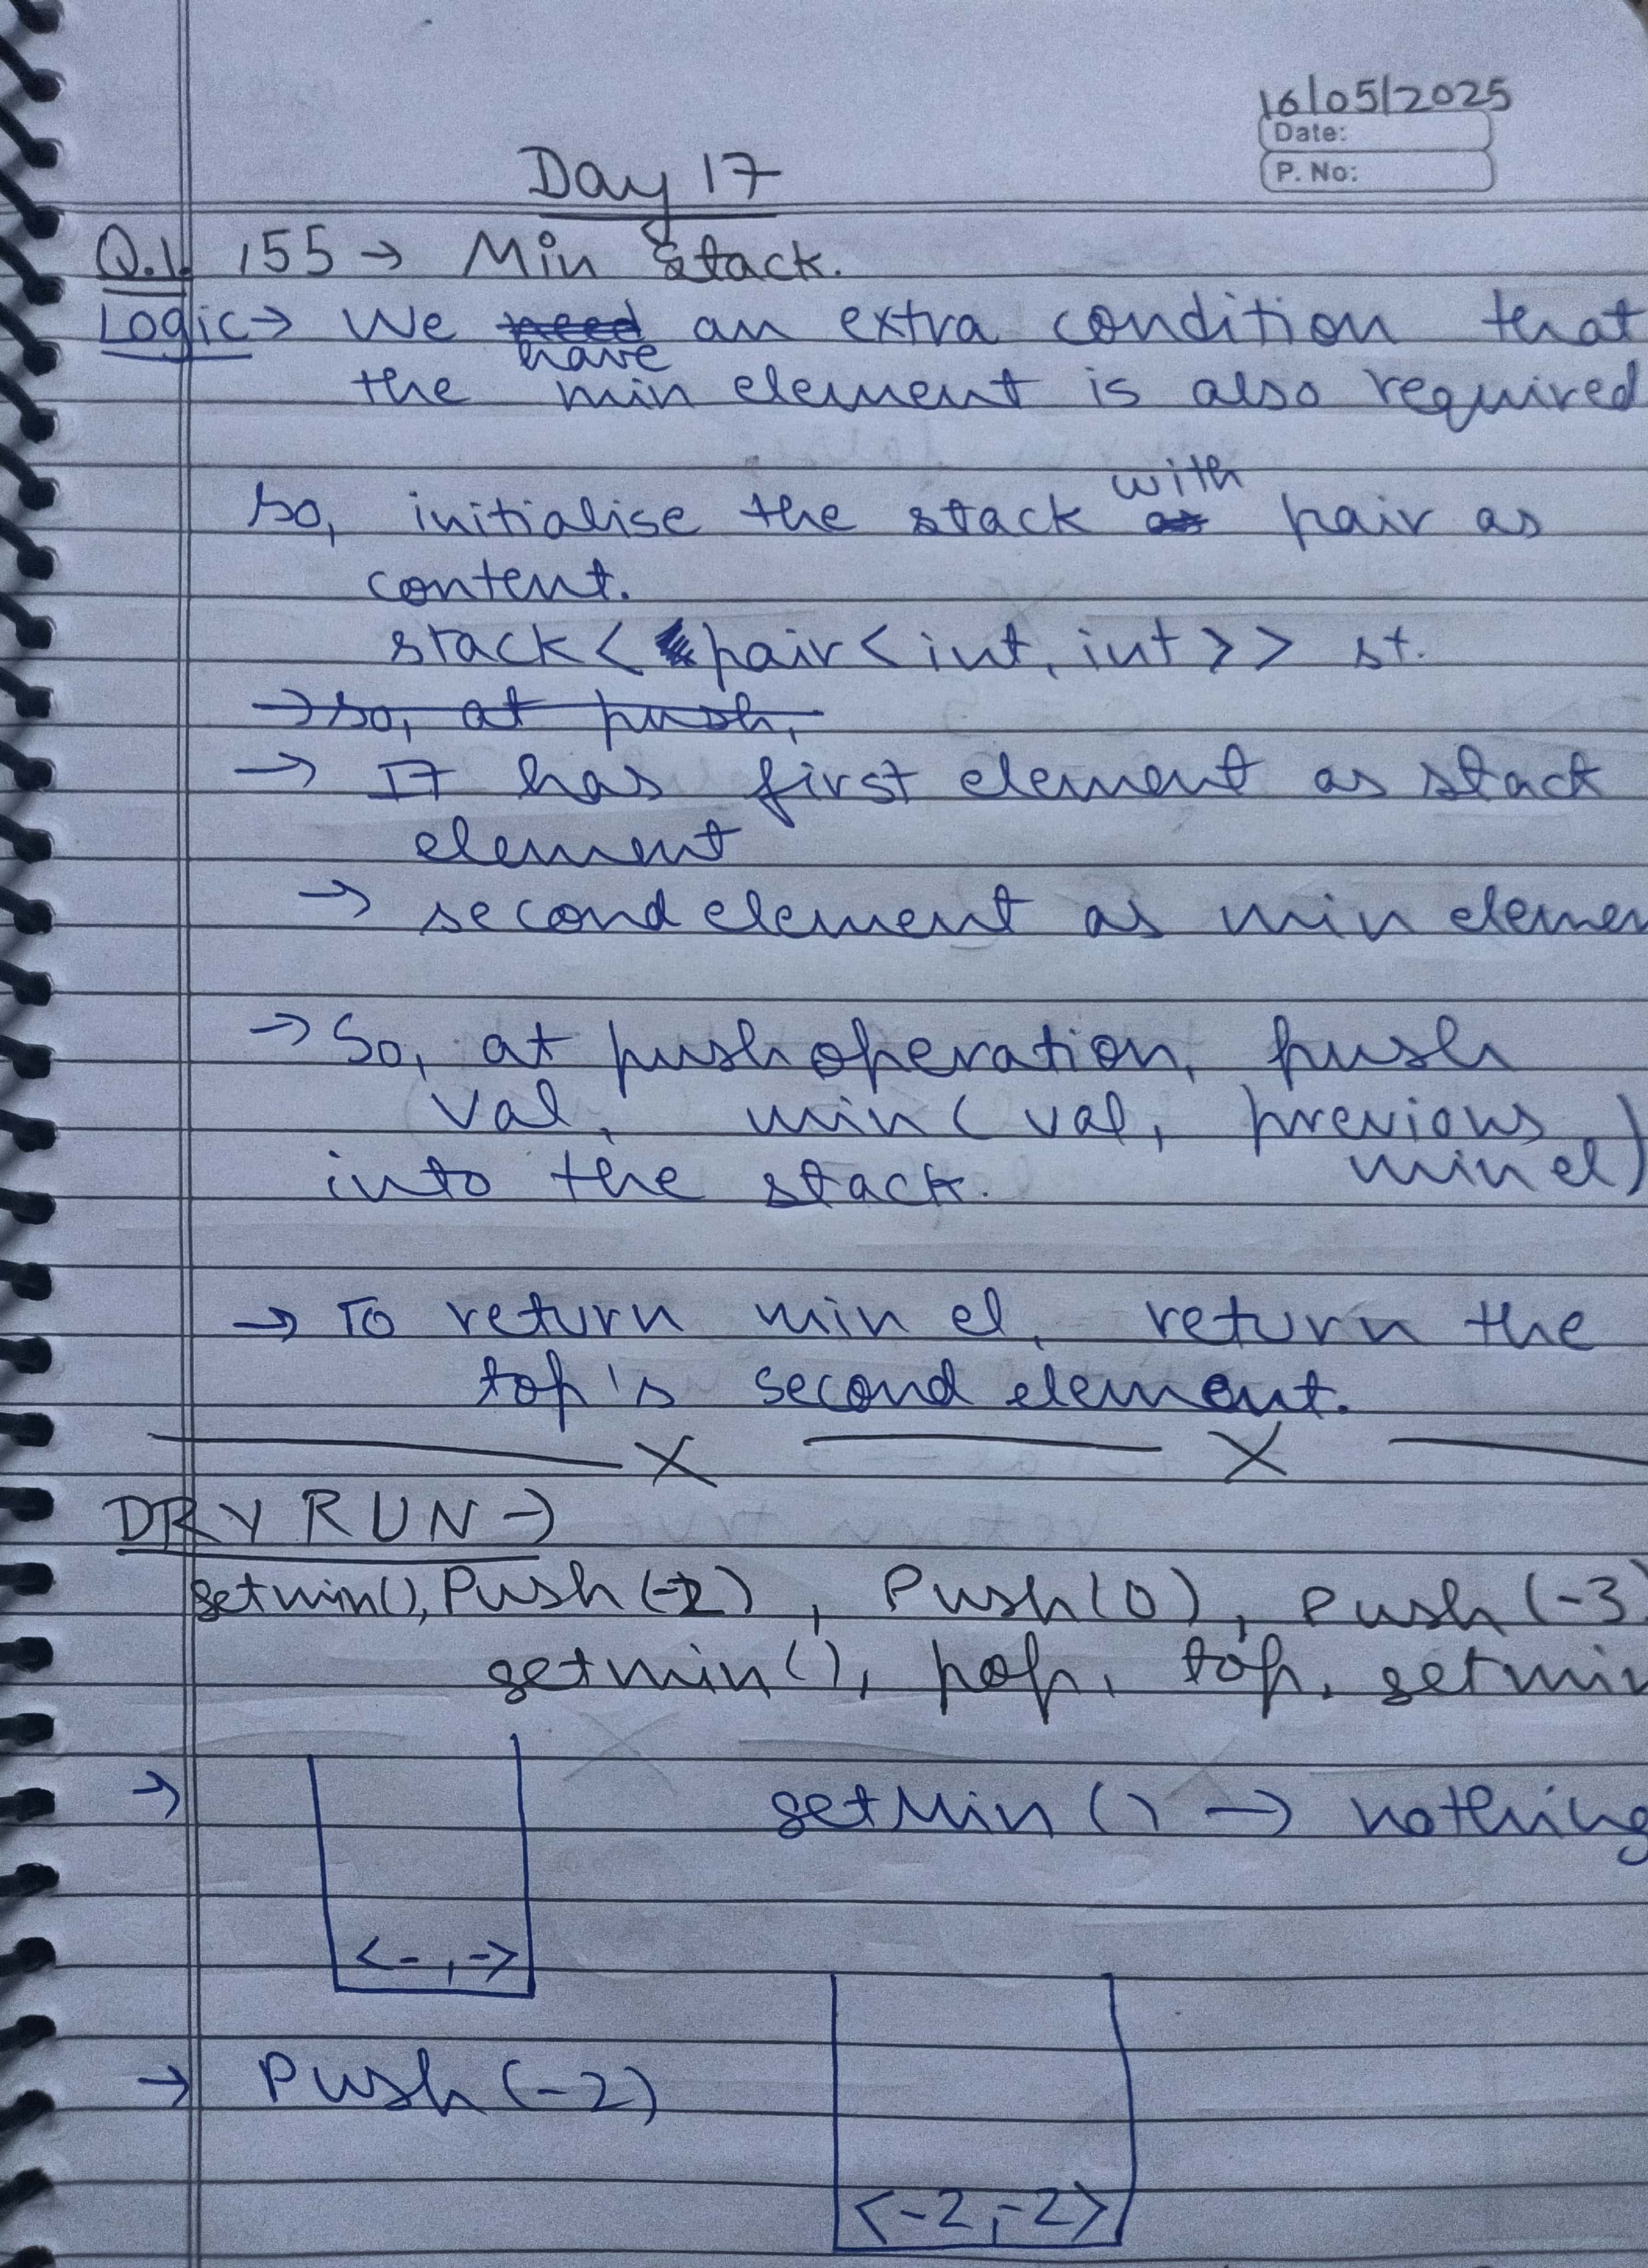 16/05/2025
Date:
P. No:
Day 17
Q.1. 155 → Min Stack.
Logic → We have an extra condition that
the min element is also required
so, initialise the stack with pair as
content.
stack< pair<int, int>> st.
→ so, at push,
→ It has first element as stack
element
→ second element as min elemen
→ So, at push operation, push
val, min( val, previous
min el)
into the stack.
→ To return min el, return the
top's second element.
X X
DRY RUN →
getmin(), Push(-2), Push(0), Push(-3)
getmin(), pop, top, getmin
→ getMin() → nothing
<-,->
→ Push(-2)
<-2,-2>